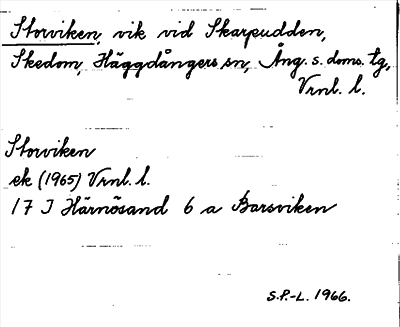 Storviken, vik vid Skarpudden,
Skedom, Häggdångers sn, Ång. s. doms. tg,
Vrnl. l.
Storviken
ek (1965) Vrnl. l.
17 J Härnösand 6 a Barsviken
S.P.-L. 1966.